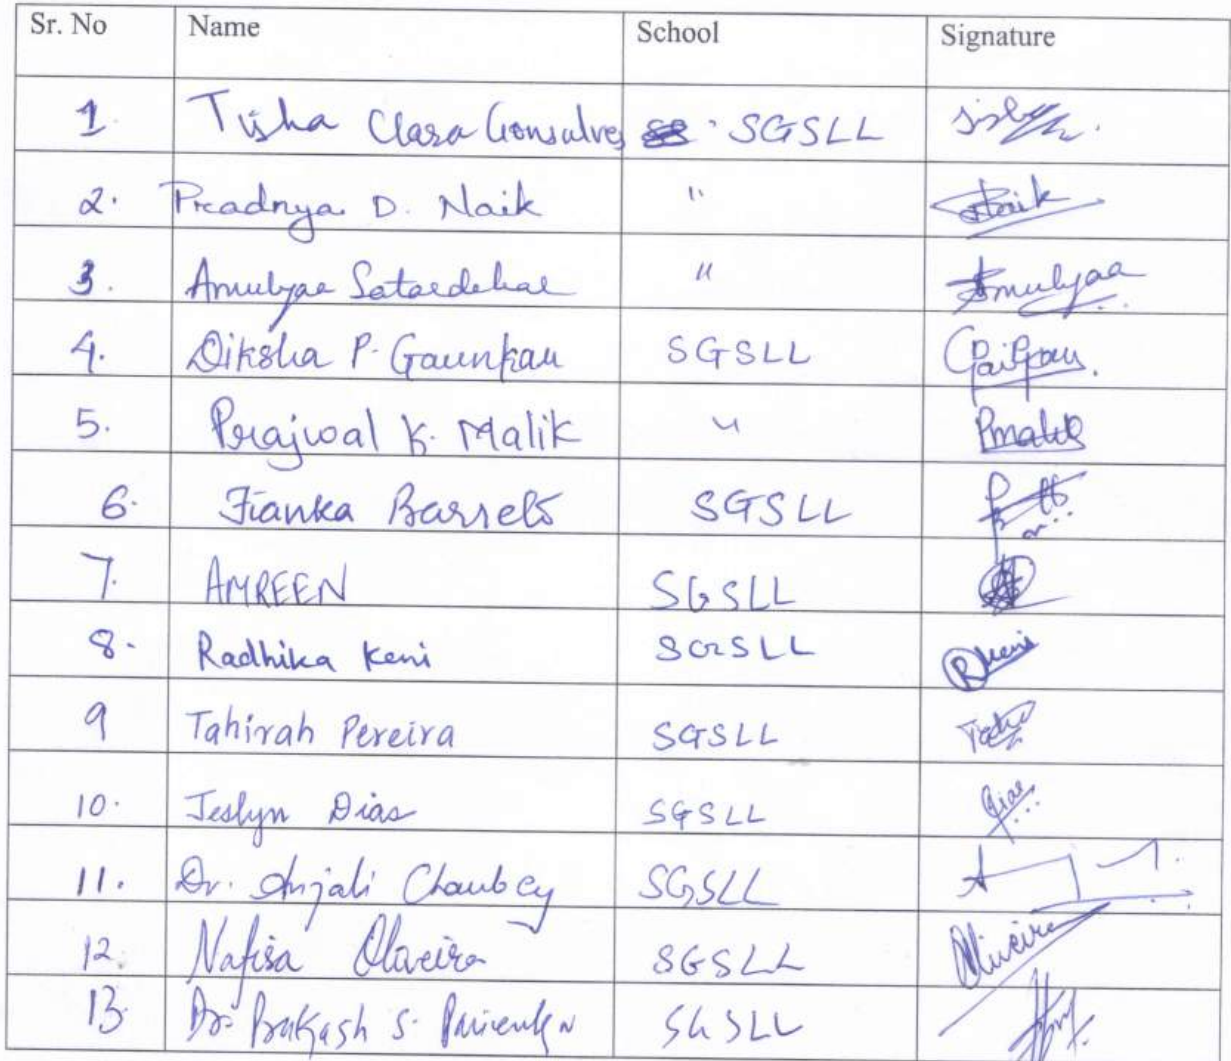 Sr. No Name School Signature
1. Tisha Clara Gonsalves SGSLL
2. Pradnya D. Naik " Naik
3. Amulyaa Satardekar " Amulyaa
4. Diksha P. Gaunkar SGSLL
5. Prajwal K. Malik " Pmalik
6. Fianka Barreto SGSLL
7. AMREEN SGSLL
8. Radhika Keni SGSLL RKeni
9 Tahirah Pereira SGSLL
10. Jeslyn Dias SGSLL Dias
11. Dr. Anjali Chaubey SGSLL
12. Nafisa Oliveira SGSLL Oliveira
13. Dr. Prakash S. SGSLL